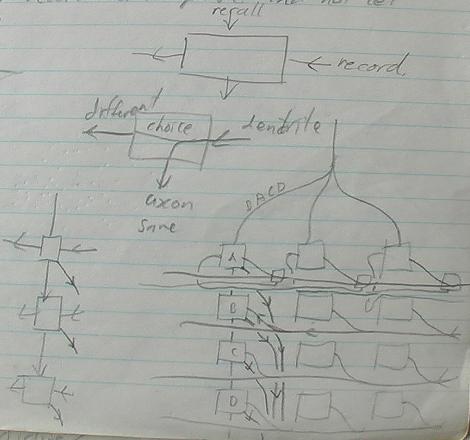 recall
record
different
choice
dendrite
axon
same
BACD
A
B
C
D